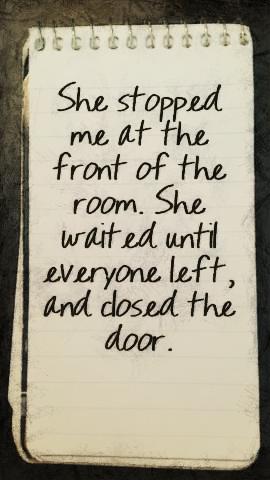 She stopped
me at the
front of the
room. She
waited until
everyone left,
and closed the
door.